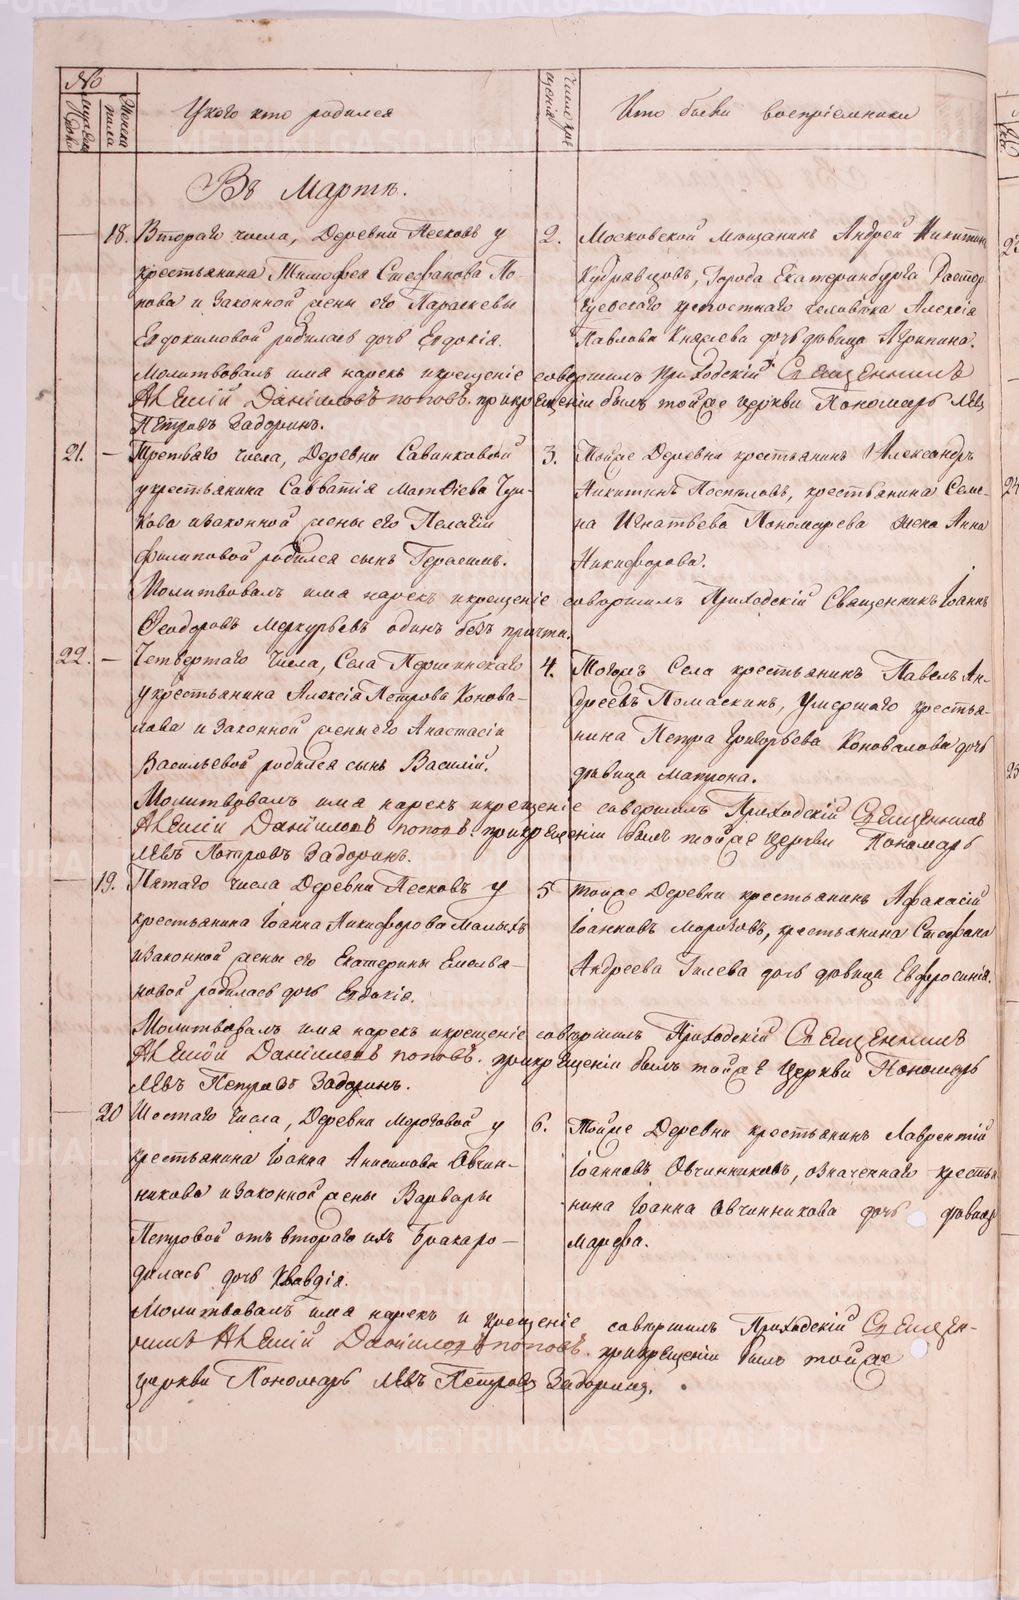 №
Мужеска пола
Женска пола
У кого кто родился
Число крещенія
Кто были воспріемники
Въ Мартѣ.
18. Втораго числа, Деревни Песковъ у
крестьянина Тимофея Стефанова По-
пова и законной жены его Параскевы
Евдокимовой родилась дочь Евдокія.
2. Московской Мещанинъ Андрей Никитинъ
Кудрявцовъ, Города Екатеринбурга Растор-
гуевскаго крепостнаго человѣка Алексѣя
Павлова Князева дочь дѣвица Агрипина.
Молитвовалъ имя нарекъ и крещеніе совершилъ Приходскій Священникъ
Алексій Даніиловъ Поповъ. при крещеніи былъ тойже церкви Пономарь Левъ
Петровъ Задоринъ.
21. Третьяго числа, Деревни Савинковой
у крестьянина Савватія Матѳіева Чур-
кова и законной жены его Пелагіи
Филиповой родился сынъ Герасимъ.
3. Тойже Деревни крестьянинъ Александръ
Никитинъ Поспѣловъ, крестьянина Семе-
на Игнатьева Пономарева жена Анна
Никифорова.
Молитвовалъ имя нарекъ и крещеніе совершилъ Приходскій Священникъ Іоаннъ
Ѳеодоровъ Меркурьевъ одинъ безъ причта.
22. Четвертаго числа, Села Першинскаго
у крестьянина Алексія Петрова Конова-
лова и законной жены его Анастасіи
Васильевой родился сынъ Василій.
4. Тогожъ Села крестьянинъ Павелъ Ан-
дреевъ Помаскинъ, умершаго крестья-
нина Петра Григорьева Коновалова дочь
дѣвица Матрона.
Молитвовалъ имя нарекъ и крещеніе совершилъ Приходскій Священникъ
Алексій Даніиловъ Поповъ. при крещеніи былъ тойже церкви Пономарь
Левъ Петровъ Задоринъ.
19. Пятаго числа Деревни Песковъ у
крестьянина Іоанна Никифорова Малыхъ
и законной жены его Екатерины Емелья-
новой родилась дочь Евдокія.
5 Тойже Деревни крестьянинъ Афанасій
Іоанновъ Мороговъ, крестьянина Стефана
Андреева Гилева дочь дѣвица Евфросинія.
Молитвовалъ имя нарекъ и крещеніе совершилъ Приходскій Священникъ
Алексій Даніиловъ Поповъ. при крещеніи былъ тойже Церкви Пономарь
Левъ Петровъ Задоринъ.
20 Шестаго числа, Деревни Мороговой у
крестьянина Іоанна Анисимова Овчин-
никова и законной жены Варвары
Петровой отъ втораго ихъ брака ро-
дилась дочь Евдокія.
6. Тойже Деревни крестьянинъ Лаврентій
Іоанновъ Овчинниковъ, означеннаго крестья-
нина Іоанна Овчинникова дочь дѣвица
Марфа.
Молитвовалъ имя нарекъ и крещеніе совершилъ Приходскій Священ-
никъ Алексій Даніиловъ Поповъ. при крещеніи былъ тойже
церкви Пономарь Левъ Петровъ Задоринъ.
METRIKI.GASO-URAL.RU